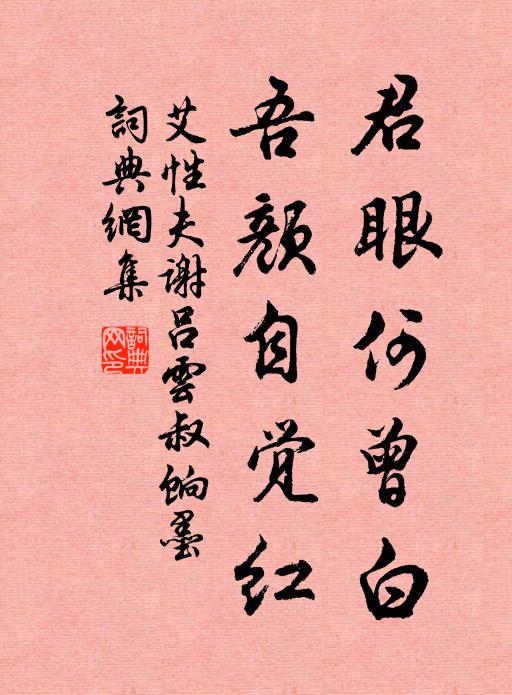 君眼何曾白
吾颜自觉红
艾性夫謝吕雲叔餉墨
詞典網集
詞典网印